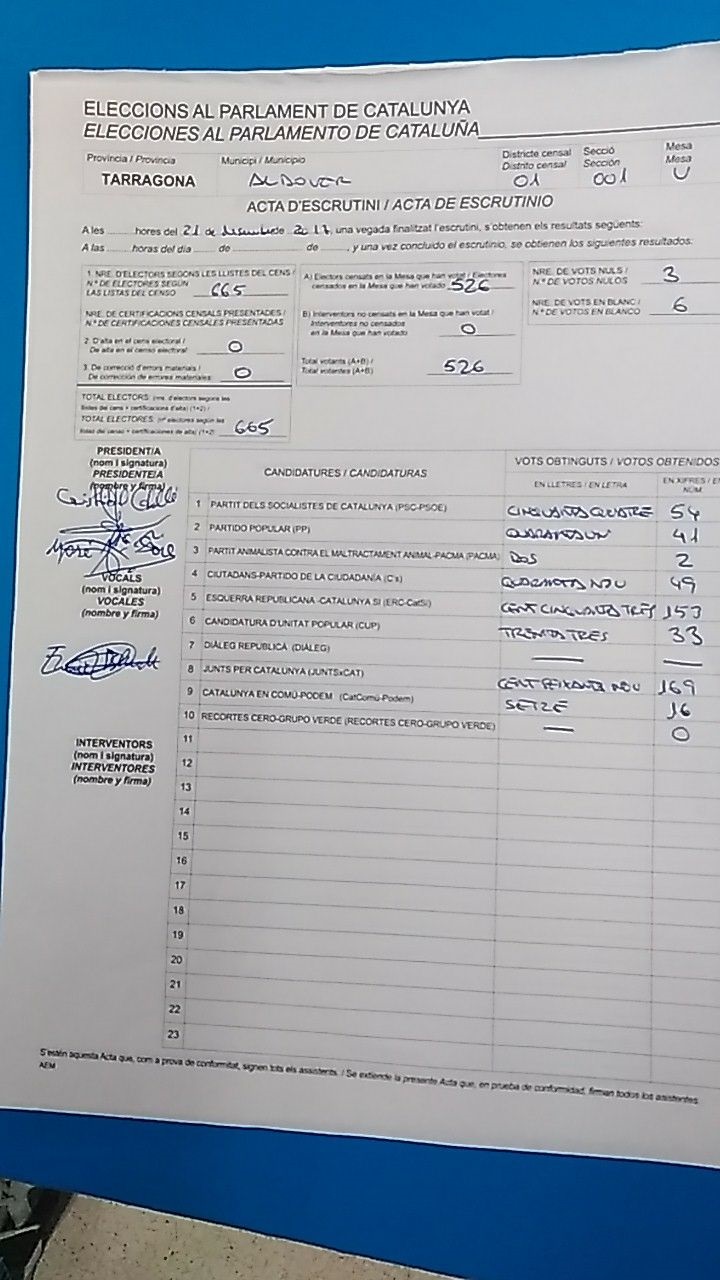 ELECCIONS AL PARLAMENT DE CATALUNYA
ELECCIONES AL PARLAMENTO DE CATALUÑA
Província / Provincia
TARRAGONA
Municipi / Municipio
ALDOVER
Districte censal
Distrito censal
01
Secció
Sección
001
Mesa
Mesa
U
ACTA D'ESCRUTINI / ACTA DE ESCRUTINIO
A les ......... hores del 21 de desembre 2017, una vegada finalitzat l'escrutini, s'obtenen els resultats següents:
A las ......... horas del día ...... de ............ de ......, y una vez concluido el escrutinio, se obtienen los siguientes resultados:
1. NRE. D'ELECTORS SEGONS LES LLISTES DEL CENS /
N.º DE ELECTORES SEGÚN
LAS LISTAS DEL CENSO 665
NRE. DE CERTIFICACIONS CENSALS PRESENTADES /
N.º DE CERTIFICACIONES CENSALES PRESENTADAS
2. D'alta en el cens electoral /
De alta en el censo electoral 0
3. De correcció d'errors materials /
De corrección de errores materiales 0
TOTAL ELECTORS: (nre. d'electors segons les
llistes del cens + certificacions d'alta) (1+2) /
TOTAL ELECTORES: (nº electores según las
listas del censo + certificaciones de alta) (1+2) 665
A) Electors censats en la Mesa que han votat / Electores
censados en la Mesa que han votado 526
B) Interventors no censats en la Mesa que han votat /
Interventores no censados
en la Mesa que han votado 0
Total votants (A+B) /
Total votantes (A+B) 526
NRE. DE VOTS NULS /
N.º DE VOTOS NULOS 3
NRE. DE VOTS EN BLANC /
N.º DE VOTOS EN BLANCO 6
PRESIDENT/A
(nom i signatura)
PRESIDENTE/A
(nombre y firma)
VOCALS
(nom i signatura)
VOCALES
(nombre y firma)
INTERVENTORS
(nom i signatura)
INTERVENTORES
(nombre y firma)
CANDIDATURES / CANDIDATURAS
VOTS OBTINGUTS / VOTOS OBTENIDOS
EN LLETRES / EN LETRA
EN XIFRES / EN
NÚM
1 PARTIT DELS SOCIALISTES DE CATALUNYA (PSC-PSOE) CINQUANTA QUATRE 54
2 PARTIDO POPULAR (PP) QUARANTA UN 41
3 PARTIT ANIMALISTA CONTRA EL MALTRACTAMENT ANIMAL-PACMA (PACMA) DOS 2
4 CIUTADANS-PARTIDO DE LA CIUDADANÍA (C's) QUARANTA NOU 49
5 ESQUERRA REPUBLICANA -CATALUNYA SÍ (ERC-CatSí) CENT CINQUANTA TRES 153
6 CANDIDATURA D'UNITAT POPULAR (CUP) TRENTA TRES 33
7 DIÀLEG REPUBLICÀ (DIÀLEG) — —
8 JUNTS PER CATALUNYA (JUNTSxCAT) CENT SEIXANTA NOU 169
9 CATALUNYA EN COMÚ-PODEM (CatComú-Podem) SETZE 16
10 RECORTES CERO-GRUPO VERDE (RECORTES CERO-GRUPO VERDE) — 0
11
12
13
14
15
16
17
18
19
20
21
22
23
S'estén aquesta Acta que, com a prova de conformitat, signen tots els assistents. / Se extiende la presente Acta que, en prueba de conformidad, firman todos los asistentes.
AEM